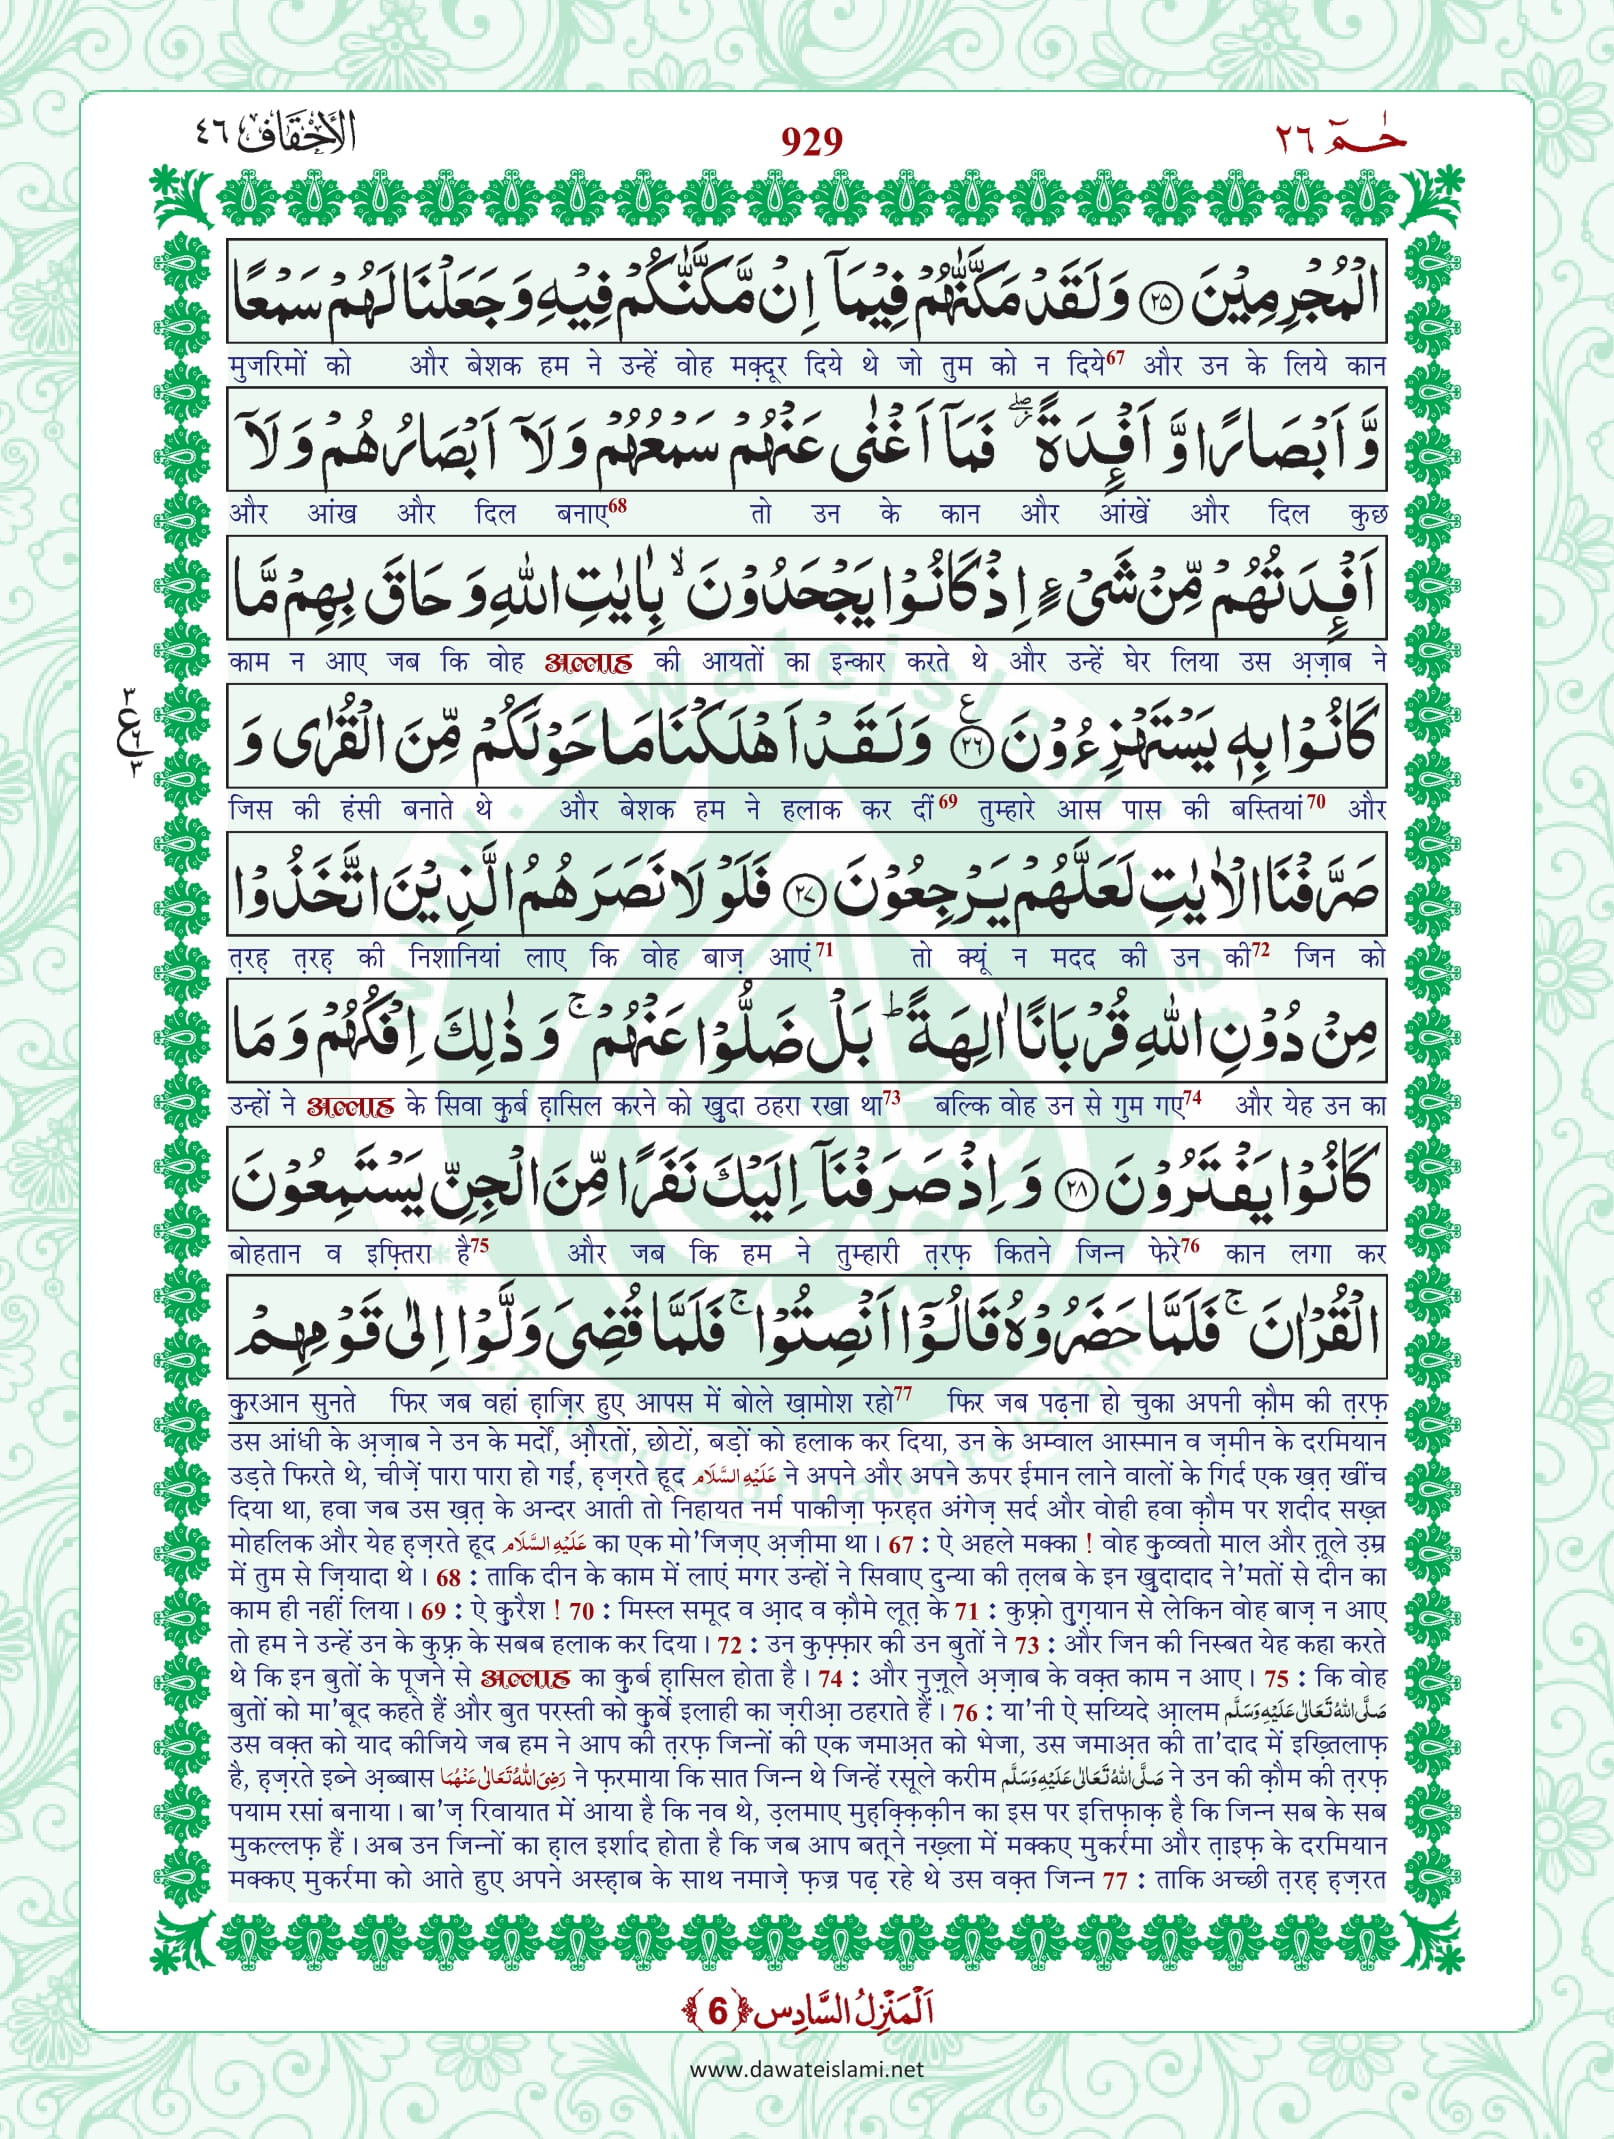 الاَحْقَاف ٤٦
929
حٰمٓ ٢٦
الْمُجْرِمِيْنَ ﴿٢٥﴾ وَلَقَدْ مَكَّنّٰهُمْ فِيْمَاۤ اِنْ مَّكَّنّٰكُمْ فِيْهِ وَجَعَلْنَا لَهُمْ سَمْعًا
मुजरिमों को और बेशक हम ने उन्हें वोह मक़्दूर दिये थे जो तुम को न दिये67 और उन के लिये कान
وَّ اَبْصَارًا وَّ اَفْـِٕدَةً ۖ٘ فَمَاۤ اَغْنٰى عَنْهُمْ سَمْعُهُمْ وَلَاۤ اَبْصَارُهُمْ وَلَاۤ
और आंख और दिल बनाए68 तो उन के कान और आंखें और दिल कुछ
اَفْـِٕدَتُهُمْ مِّنْ شَیْءٍ اِذْ كَانُوْا یَجْحَدُوْنَ ۙ بِاٰیٰتِ اللّٰهِ وَ حَاقَ بِهِمْ مَّا
काम न आए जब कि वोह अल्लाह की आयतों का इन्कार करते थे और उन्हें घेर लिया उस अ़ज़ाब ने
٣
ع
٦
٣
كَانُوْا بِهٖ یَسْتَهْزِءُوْنَ ﴿٢٦﴾ ع وَلَقَدْ اَهْلَكْنَا مَا حَوْلَكُمْ مِّنَ الْقُرٰى وَ
जिस की हंसी बनाते थे और बेशक हम ने हलाक कर दीं69 तुम्हारे आस पास की बस्तियां70 और
صَرَّفْنَا الْاٰیٰتِ لَعَلَّهُمْ یَرْجِعُوْنَ ﴿٢٧﴾ فَلَوْلَا نَصَرَهُمُ الَّذِیْنَ اتَّخَذُوْا
त़रह़ त़रह़ की निशानियां लाए कि वोह बाज़ आएं71 तो क्यूं न मदद की उन की72 जिन को
مِنْ دُوْنِ اللّٰهِ قُرْبَانًا اٰلِهَةً ؕ بَلْ ضَلُّوْا عَنْهُمْ ۚ وَ ذٰلِكَ اِفْكُهُمْ وَ مَا
उन्हों ने अल्लाह के सिवा कु़र्ब ह़ासिल करने को खु़दा ठहरा रखा था73 बल्कि वोह उन से गुम गए74 और येह उन का
كَانُوْا یَفْتَرُوْنَ ﴿٢٨﴾ وَ اِذْ صَرَفْنَاۤ اِلَیْكَ نَفَرًا مِّنَ الْجِنِّ یَسْتَمِعُوْنَ
बोहतान व इफ़्तिरा है75 और जब कि हम ने तुम्हारी त़रफ़ कितने जिन्न फेरे76 कान लगा कर
الْقُرْاٰنَ ۚ فَلَمَّا حَضَرُوْهُ قَالُوْۤا اَنْصِتُوْا ۚ فَلَمَّا قُضِیَ وَلَّوْا اِلٰى قَوْمِهِمْ
कु़रआन सुनते फिर जब वहां ह़ाज़िर हुए आपस में बोले ख़ामोश रहो77 फिर जब पढ़ना हो चुका अपनी क़ौम की त़रफ़
उस आंधी के अ़ज़ाब ने उन के मर्दों, औ़रतों, छोटों, बड़ों को हलाक कर दिया, उन के अम्वाल आस्मान व ज़मीन के दरमियान
उड़ते फिरते थे, चीज़ें पारा पारा हो गईं, ह़ज़रते हूद عَلَيْهِ السَّلَام ने अपने और अपने ऊपर ईमान लाने वालों के गिर्द एक ख़त़ खींच
दिया था, हवा जब उस ख़त़ के अन्दर आती तो निहायत नर्म पाकीज़ा फ़रह़त अंगेज़ सर्द और वोही हवा क़ौम पर शदीद सख़्त
मोहलिक और येह ह़ज़रते हूद عَلَيْهِ السَّلَام का एक मो'जिज़ए अ़ज़ीमा था। 67 : ऐ अहले मक्का ! वोह कु़व्वतो माल और त़ूले उ़म्र
में तुम से ज़ियादा थे। 68 : ताकि दीन के काम में लाएं मगर उन्हों ने सिवाए दुन्या की त़लब के इन खु़दादाद ने'मतों से दीन का
काम ही नहीं लिया। 69 : ऐ कु़रैश ! 70 : मिस्ल समूद व आ़द व क़ौमे लूत़ के 71 : कुफ़्रो तुग़्यान से लेकिन वोह बाज़ न आए
तो हम ने उन्हें उन के कुफ़्र के सबब हलाक कर दिया। 72 : उन कुफ़्फ़ार की उन बुतों ने 73 : और जिन की निस्बत येह कहा करते
थे कि इन बुतों के पूजने से अल्लाह का कु़र्ब ह़ासिल होता है। 74 : और नुज़ूले अ़ज़ाब के वक़्त काम न आए। 75 : कि वोह
बुतों को मा'बूद कहते हैं और बुत परस्ती को कु़र्बे इलाही का ज़रीआ़ ठहराते हैं। 76 : या'नी ऐ सय्यिदे आ़लम صَلَّى اللّٰهُ تَعَالٰى عَلَيْهِ وَسَلَّم
उस वक़्त को याद कीजिये जब हम ने आप की त़रफ़ जिन्नों की एक जमाअ़त को भेजा, उस जमाअ़त की ता'दाद में इख़्तिलाफ़
है, ह़ज़रते इब्ने अ़ब्बास رَضِىَ اللّٰهُ تَعَالٰى عَنْهُمَا ने फ़रमाया कि सात जिन्न थे जिन्हें रसूले करीम صَلَّى اللّٰهُ تَعَالٰى عَلَيْهِ وَسَلَّم ने उन की क़ौम की त़रफ़
पयाम रसां बनाया। बा'ज़ रिवायात में आया है कि नव थे, उ़लमाए मुह़क़्क़िक़ीन का इस पर इत्तिफ़ाक़ है कि जिन्न सब के सब
मुकल्लफ़ हैं। अब उन जिन्नों का ह़ाल इर्शाद होता है कि जब आप बत़्ने नख़्ला में मक्कए मुकर्रमा और त़ाइफ़ के दरमियान
मक्कए मुकर्रमा को आते हुए अपने अस्ह़ाब के साथ नमाज़े फ़ज्र पढ़ रहे थे उस वक़्त जिन्न 77 : ताकि अच्छी त़रह़ ह़ज़रत
اَلْمَنْزِلُ السَّادِس ﴿6﴾
www.dawateislami.net